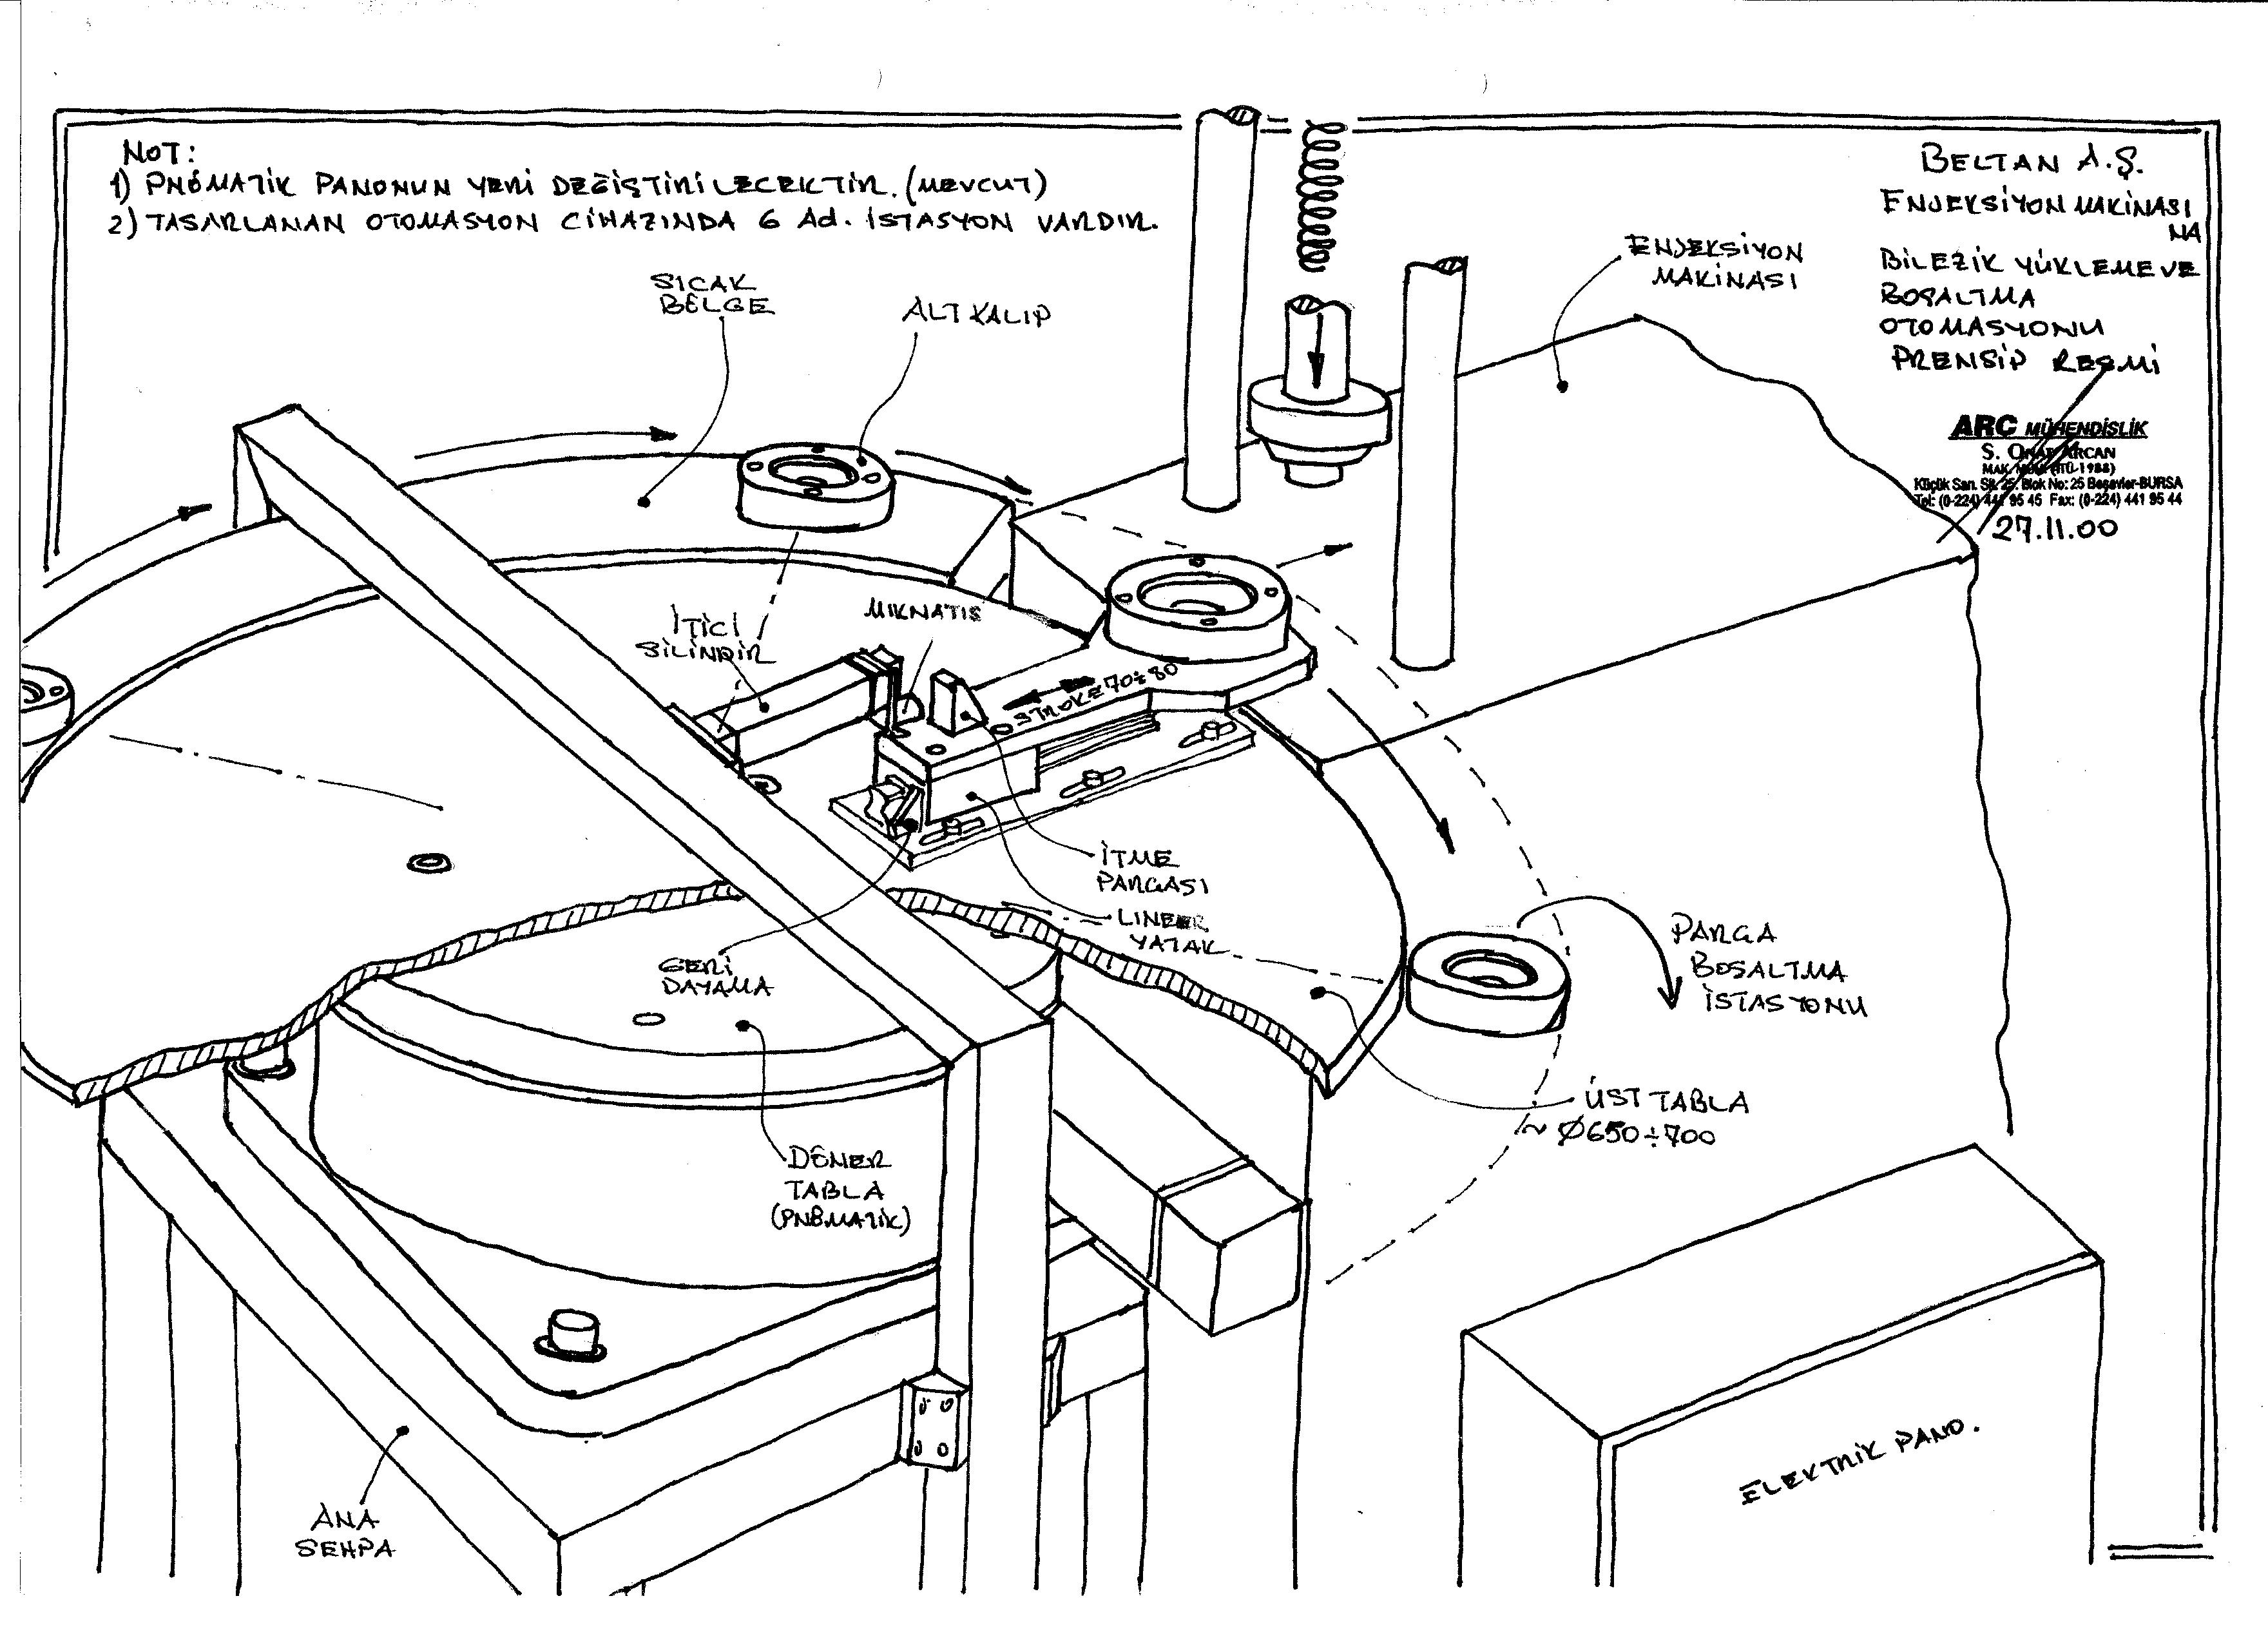 NOT:
1) PNÖMATİK PANONUN YERİ DEĞİŞTİRİLECEKTİR. (MEVCUT)
2) TASARLANAN OTOMASYON CİHAZINDA 6 Ad. İSTASYON VARDIR.
BELTAN A.Ş.
ENJEKSİYON MAKİNASI
NA
BİLEZİK YÜKLEME VE
BOŞALTMA
OTOMASYONU
PRENSİP RESMİ
ARC MÜHENDİSLİK
S. ONAT ARCAN
MAK. MÜH. (İTÜ-1988)
Küçük San. Sit. 25. Blok No: 25 Beşevler-BURSA
Tel: (0-224) 441 95 45 Fax: (0-224) 441 95 44
27.11.00
ENJEKSİYON
MAKİNASI
SICAK
BÖLGE
ALT KALIP
İTİCİ
SİLİNDİR
MIKNATIS
STROKE 70÷80
İTME
PARÇASI
LINEER
YATAK
GERİ
DAYAMA
PARÇA
BOŞALTMA
İSTASYONU
ÜST TABLA
~ Ø650÷700
DÖNER
TABLA
(PNÖMATİK)
ANA
SEHPA
ELEKTRİK PANO.